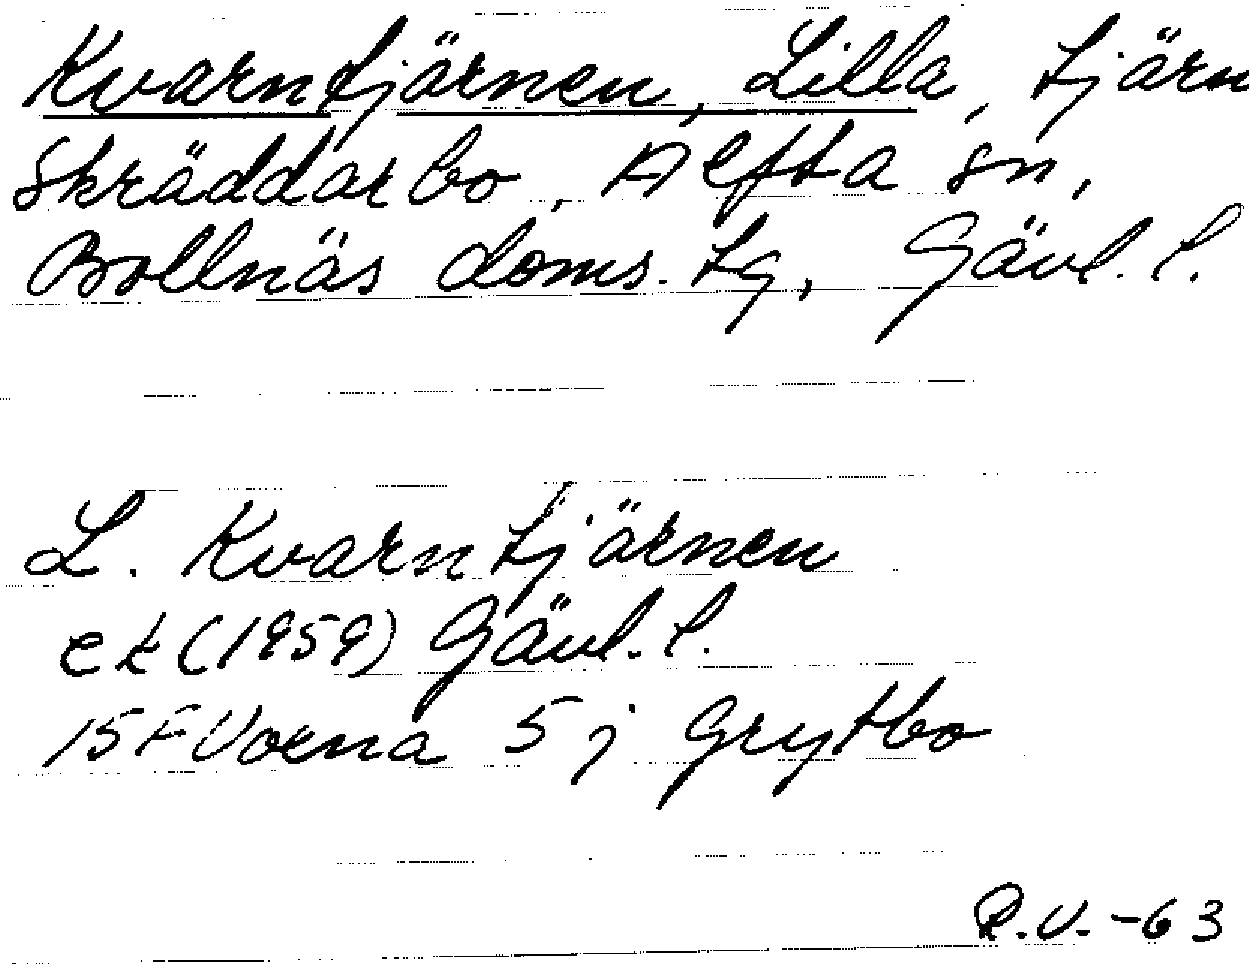 Kvarntjärnen, Lilla, tjärn
Skräddarbo, Alfta sn,
Bollnäs doms. tg, Gävl. l.
L. Kvarntjärnen
ek (1959) Gävl. l.
15 F Voxna 5 j Grytbo
R.V. -63